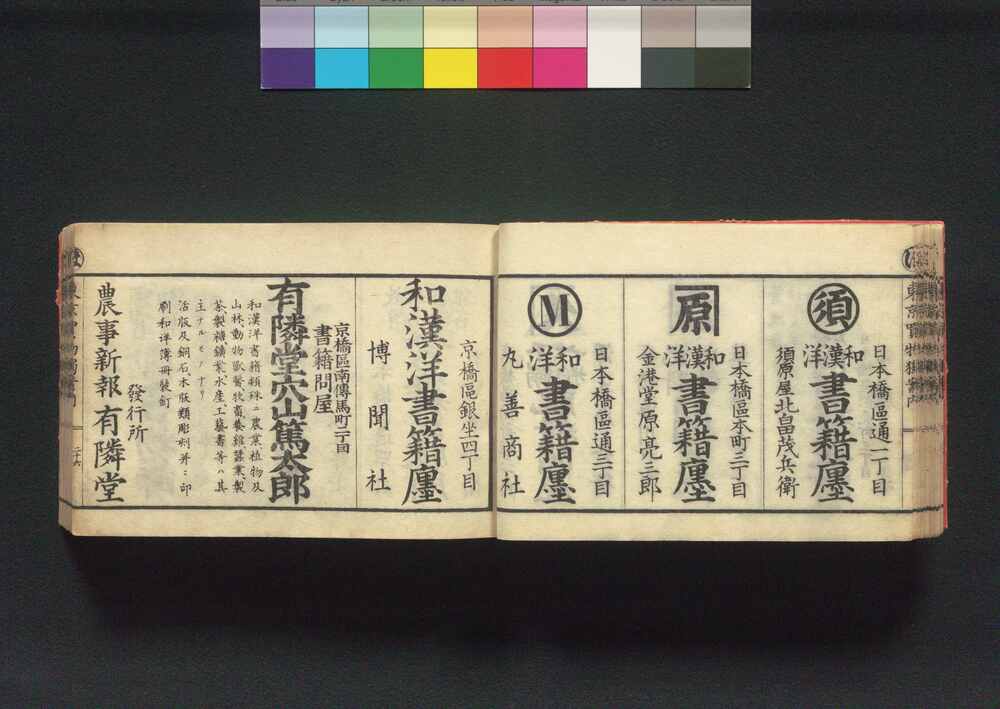 須
日本橋區通一丁目
和漢洋書籍廛
須原屋北畠茂兵衛
原
日本橋區本町三丁目
和漢洋書籍廛
金港堂原亮三郎
M
日本橋區通三丁目
和洋書籍廛
丸善商社
京橋區銀坐四丁目
和漢洋書籍廛
博聞社
京橋區南傳馬町二丁目
書籍問屋
有隣堂穴山篤太郎
和漢洋書籍類殊ニ農業植物及
山林動物獸醫牧畜養雞蠶業製
茶製糖鑛業水産工藝書等ハ其
主ナルモノナリ
活版及銅石木版類彫刻并ニ印
刷和洋簿冊裝釘
發行所
農事新報有隣堂